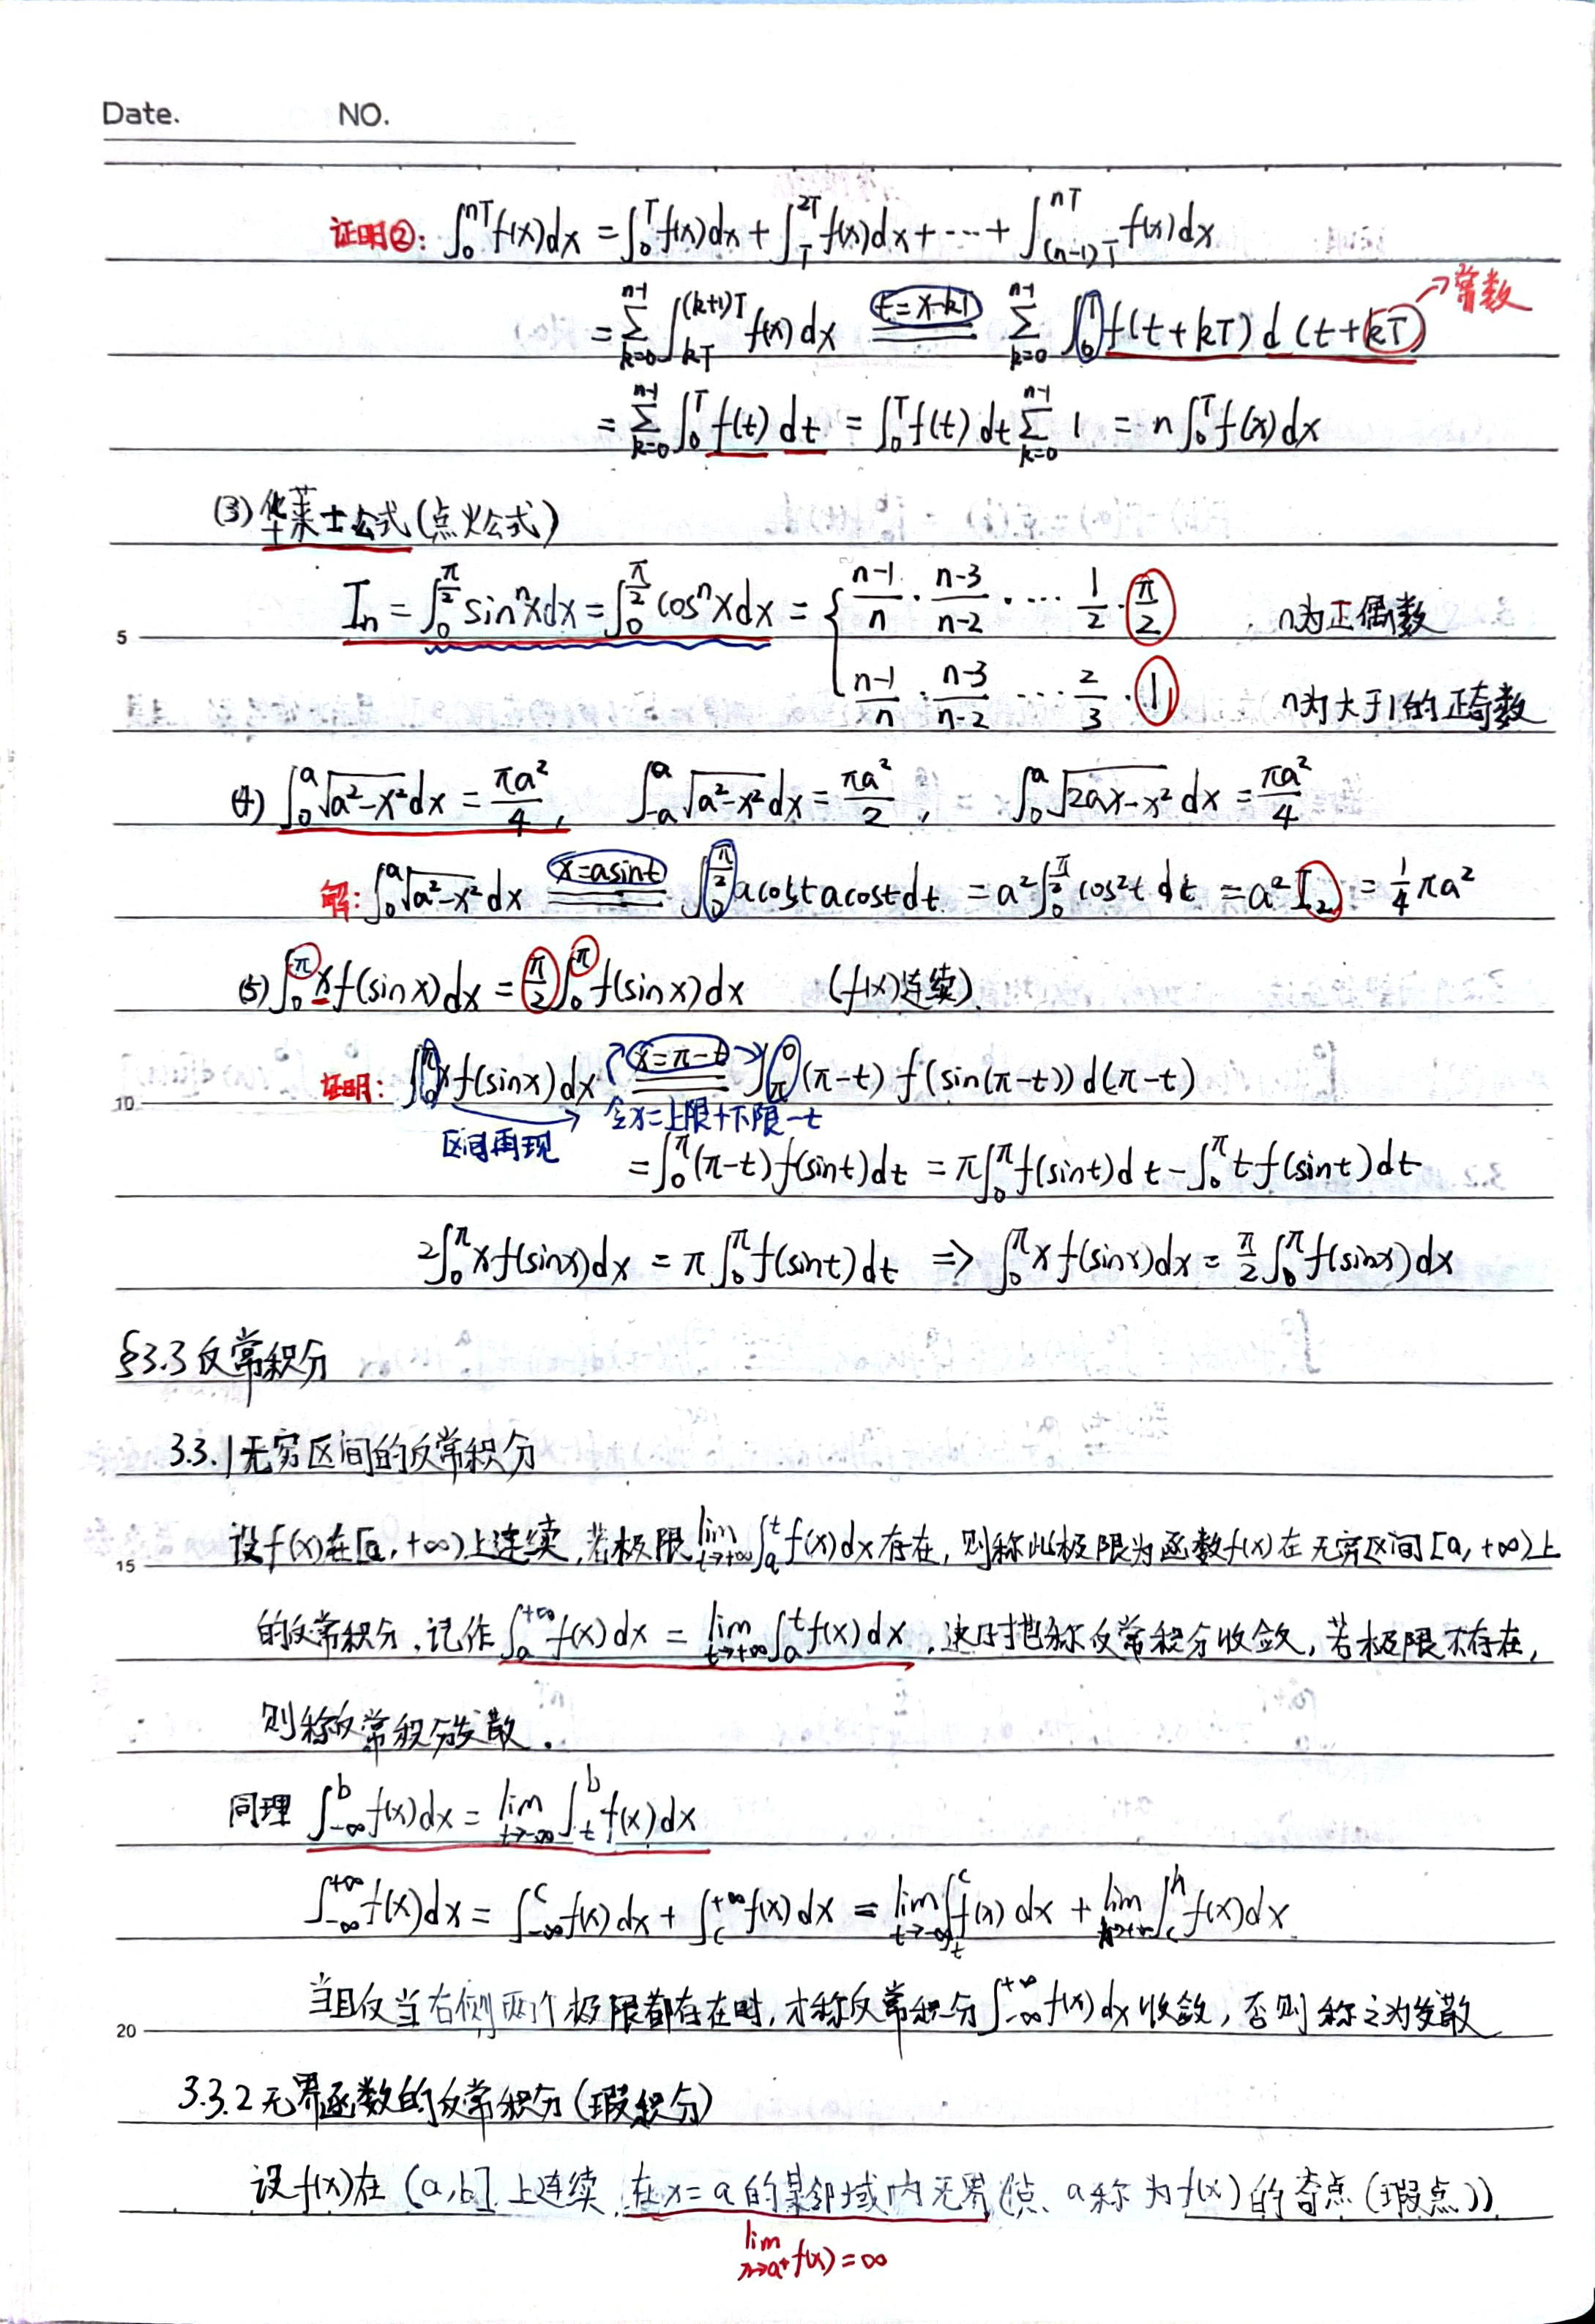 Date. NO.
证明②: ∫₀^{nT} f(x)dx = ∫₀^T f(x)dx + ∫_T^{2T} f(x)dx + ⋯ + ∫_{(n-1)T}^{nT} f(x)dx
= Σ_{k=0}^{n-1} ∫_{kT}^{(k+1)T} f(x)dx (t=x-kT) Σ_{k=0}^{n-1} ∫₀^T f(t+kT) d(t+kT) → 常数
= Σ_{k=0}^{n-1} ∫₀^T f(t) dt = ∫₀^T f(t) dt Σ_{k=0}^{n-1} 1 = n∫₀^T f(x)dx
(3) 华莱士公式(点火公式)
I_n = ∫₀^{π/2} sinⁿx dx = ∫₀^{π/2} cosⁿx dx = { (n-1)/n · (n-3)/(n-2) · ⋯ 1/2 · π/2 , n为正偶数
(n-1)/n · (n-3)/(n-2) ⋯ 2/3 · 1, n为大于1的正奇数
5
(4) ∫₀^a √(a²-x²) dx = πa²/4, ∫_{-a}^a √(a²-x²) dx = πa²/2, ∫₀^a √(2ax-x²) dx = πa²/4
解: ∫₀^a √(a²-x²) dx (x=asint) ∫₀^{π/2} acost acost dt = a²∫₀^{π/2} cos²t dt = a² I₂ = 1/4 πa²
(5) ∫₀^π x f(sinx)dx = π/2 ∫₀^π f(sinx)dx (f(x)连续)
证明: ∫₀^π x f(sinx)dx (x=π-t) ∫_π^0 (π-t) f(sin(π-t)) d(π-t)
10
区间再现 令x=上限+下限-t
= ∫₀^π (π-t) f(sint)dt = π∫₀^π f(sint)dt - ∫₀^π t f(sint)dt
2∫₀^π x f(sinx)dx = π∫₀^π f(sint)dt ⇒ ∫₀^π x f(sinx)dx = π/2 ∫₀^π f(sinx)dx
§3.3 反常积分
3.3.1 无穷区间的反常积分
设f(x)在[a,+∞)上连续,若极限 lim_{t→+∞} ∫_a^t f(x)dx存在,则称此极限为函数f(x)在无穷区间[a,+∞)上
15
的反常积分,记作 ∫_a^{+∞} f(x)dx = lim_{t→+∞} ∫_a^t f(x)dx, 这时也称反常积分收敛,若极限不存在,
则称反常积分发散.
同理 ∫_{-∞}^b f(x)dx = lim_{t→-∞} ∫_t^b f(x)dx
∫_{-∞}^{+∞} f(x)dx = ∫_{-∞}^c f(x)dx + ∫_c^{+∞} f(x)dx = lim_{t→-∞} ∫_t^c f(x)dx + lim ∫_c^h f(x)dx
当且仅当右侧两个极限都存在时,才称反常积分 ∫_{-∞}^{+∞} f(x)dx收敛,否则称之为发散
20
3.3.2 无界函数的反常积分(瑕积分)
设f(x)在(a,b]上连续,在x=a的某邻域内无界(点 a称为f(x)的奇点(瑕点))
lim_{x→a⁺} f(x)=∞